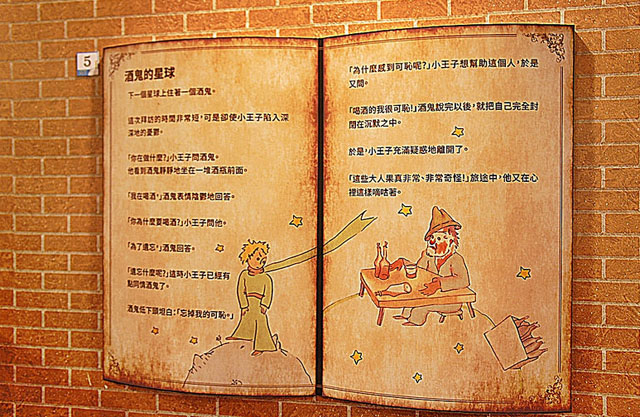 5
酒鬼的星球
下一個星球上住著一個酒鬼。
這次拜訪的時間非常短，可是卻使小王子陷入深
深地的憂鬱。
「你在做什麼?」小王子問酒鬼。
他看到酒鬼靜靜地坐在一堆酒瓶前面。
「我在喝酒。」酒鬼表情陰鬱地回答。
「你為什麼要喝酒?」小王子問他。
「為了遺忘。」酒鬼回答。
「遺忘什麼呢?」這時小王子已經有
點同情酒鬼了。
酒鬼低下頭坦白:「忘掉我的可恥。」
「為什麼感到可恥呢?」小王子想幫助這個人，於是
又問。
「喝酒的我很可恥!」酒鬼說完以後，就把自己完全封
閉在沉默之中。
於是，小王子充滿疑惑地離開了。
「這些大人果真非常、非常奇怪!」旅途中，他又在心
裡這樣嘀咕著。